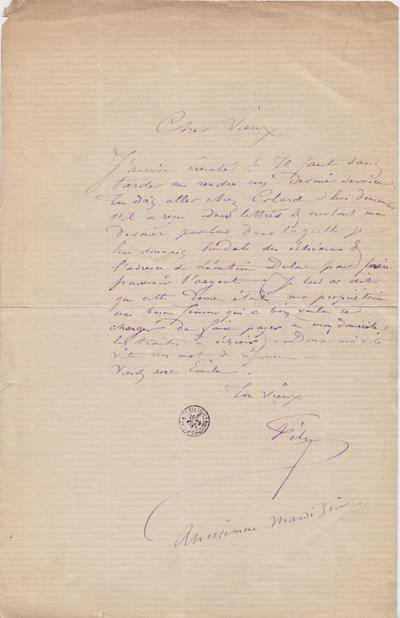 Cher Vieux
J'arrive éreinté ! Il faut sans
tarder me rendre un dernier service
Tu dois aller chez Colard lui demander
s'il a reçu mes lettres & surtout ma
dernière par laquelle je
lui donnais la date des échéances &
l'adresse de pour faire
parvenir l'argent Je lui ai dit
que cette Dame était ma propriétaire
une bonne femme qui a bien voulu se
charger de faire payer à mon domicile
les traites à échoir). Donne moi vite
vite un mot de réponse
Viens avec Emile.
Ton vieux
Mardi Soir